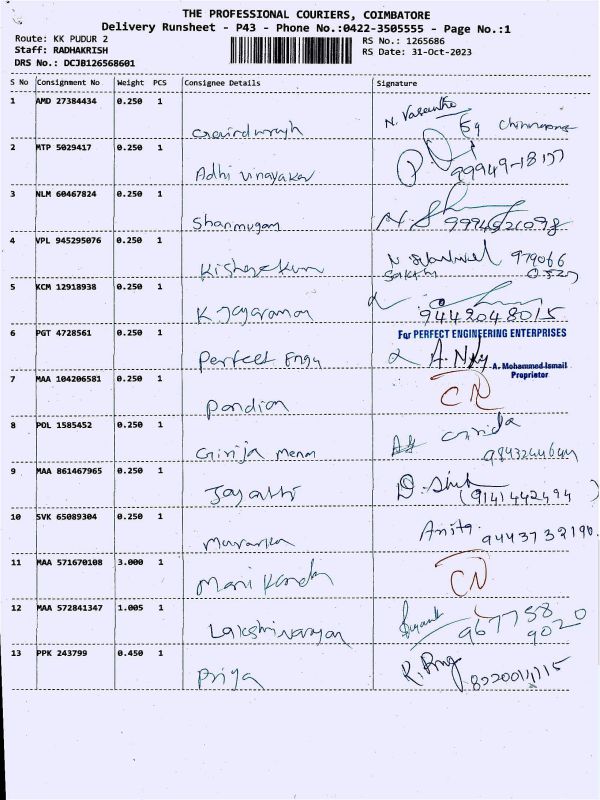 THE PROFESSIONAL COURIERS, COIMBATORE
Delivery Runsheet - P43 - Phone No.:0422-3505555 - Page No.:1
Route: KK PUDUR 2
RS No.: 1265686
Staff: RADHAKRISH
RS Date: 31-Oct-2023
DRS No.: DCJB126568601
S No Consignment No Weight PCS Consignee Details Signature
1 AMD 27384434 0.250 1 N. Vasantha
2 MTP 5029417 0.250 1 Adhi vinayakar 99949-18157
3 NLM 60467824 0.250 1 Shanmugam
4 VPL 945295076 0.250 1 979066
5 KCM 12918938 0.250 1 K Jayaraman 9442048015
For PERFECT ENGINEERING ENTERPRISES
6 PGT 4728561 0.250 1 Perfect Engg
A. Mohammed Ismail
Proprietor
7 MAA 104206581 0.250 1 Pandian
8 POL 1585452 0.250 1 Girija menon
9 MAA 861467965 0.250 1 Jayanthi (9141442494)
10 SVK 65089304 0.250 1 Anita. 9443732190
11 MAA 571670108 3.000 1 Mani Kanda
12 MAA 572841347 1.005 1 Lakshminarayan 967758
9020
13 PPK 243799 0.450 1 Priya